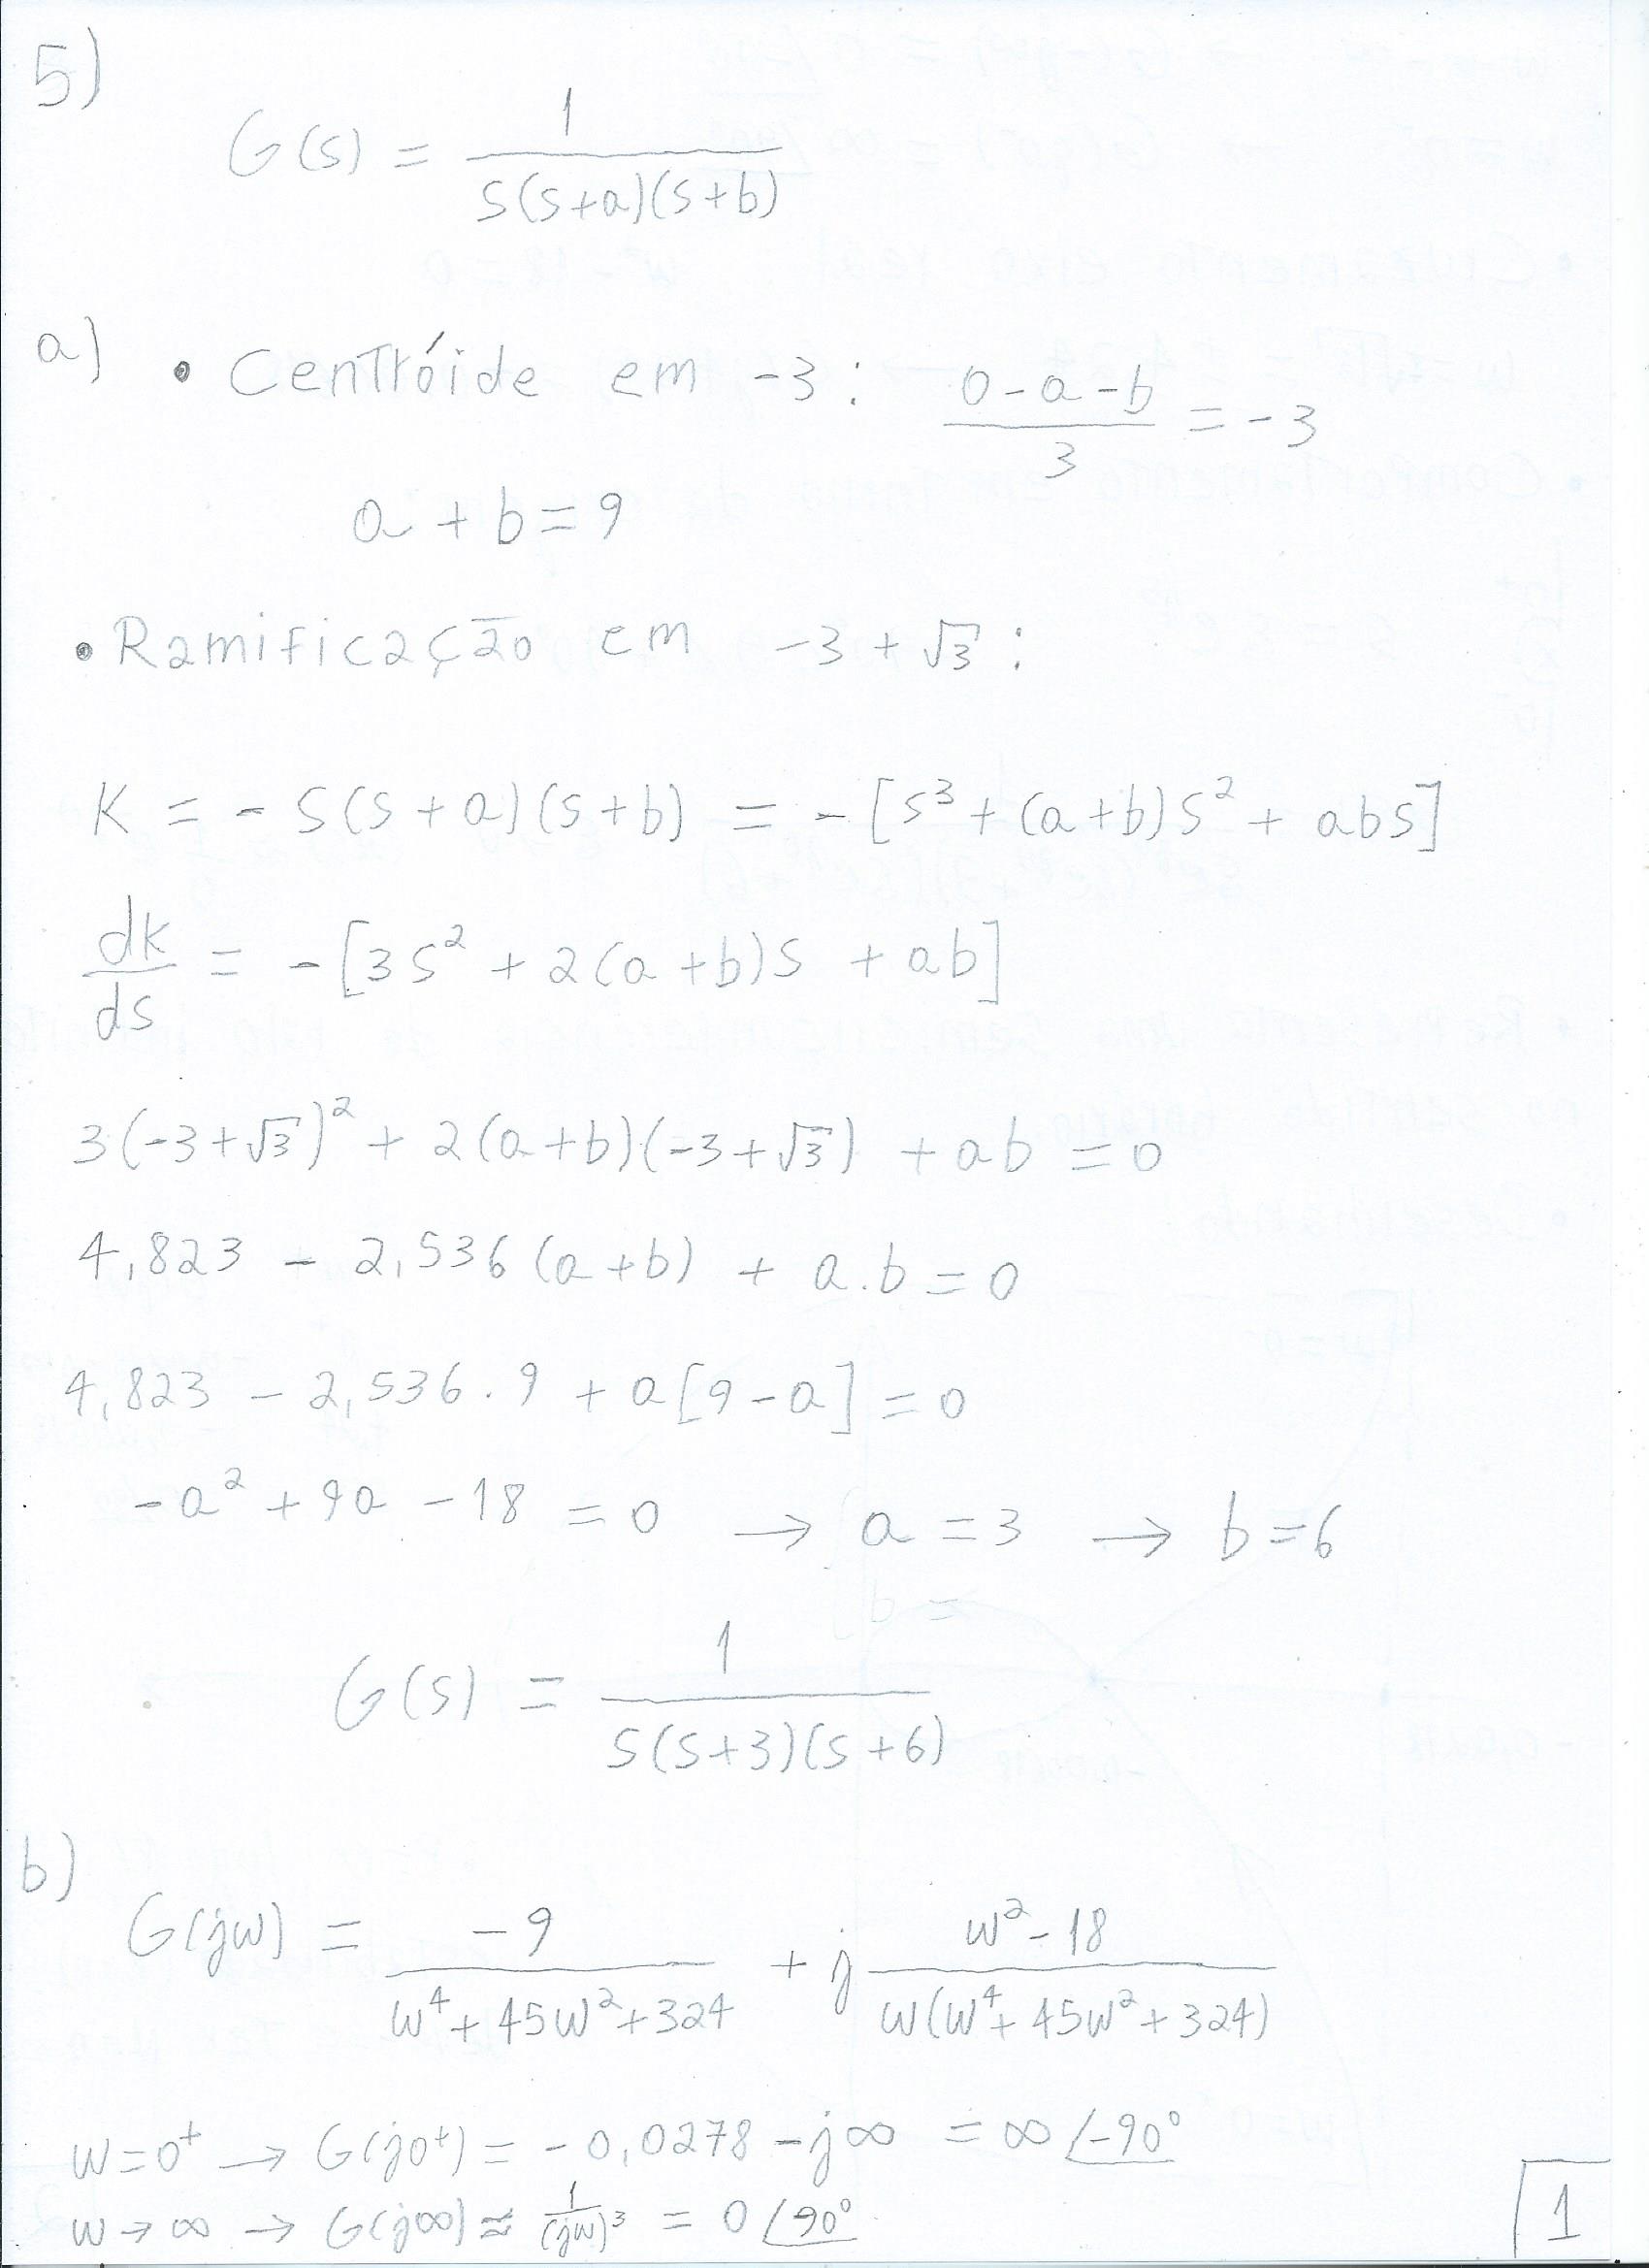 5)
G(s) = 1 / s(s+a)(s+b)
a) • Centróide em -3: (0-a-b)/3 = -3
a + b = 9
• Ramificação em -3 + √3 :
K = - s(s+a)(s+b) = - [s³ + (a+b)s² + abs]
dk/ds = - [3s² + 2(a+b)s + ab]
3(-3+√3)² + 2(a+b)(-3+√3) + ab = 0
4,823 - 2,536(a+b) + a.b = 0
4,823 - 2,536.9 + a[9-a] = 0
-a² + 9a - 18 = 0 → a = 3 → b = 6
G(s) = 1 / s(s+3)(s+6)
b)
G(jw) = -9 / (w⁴ + 45w² + 324) + j (w² - 18) / w(w⁴ + 45w² + 324)
w = 0⁺ → G(j0⁺) = -0,0278 - j∞ = ∞ ∠-90°
w → ∞ → G(j∞) ≈ 1/(jw)³ = 0 ∠90°
1